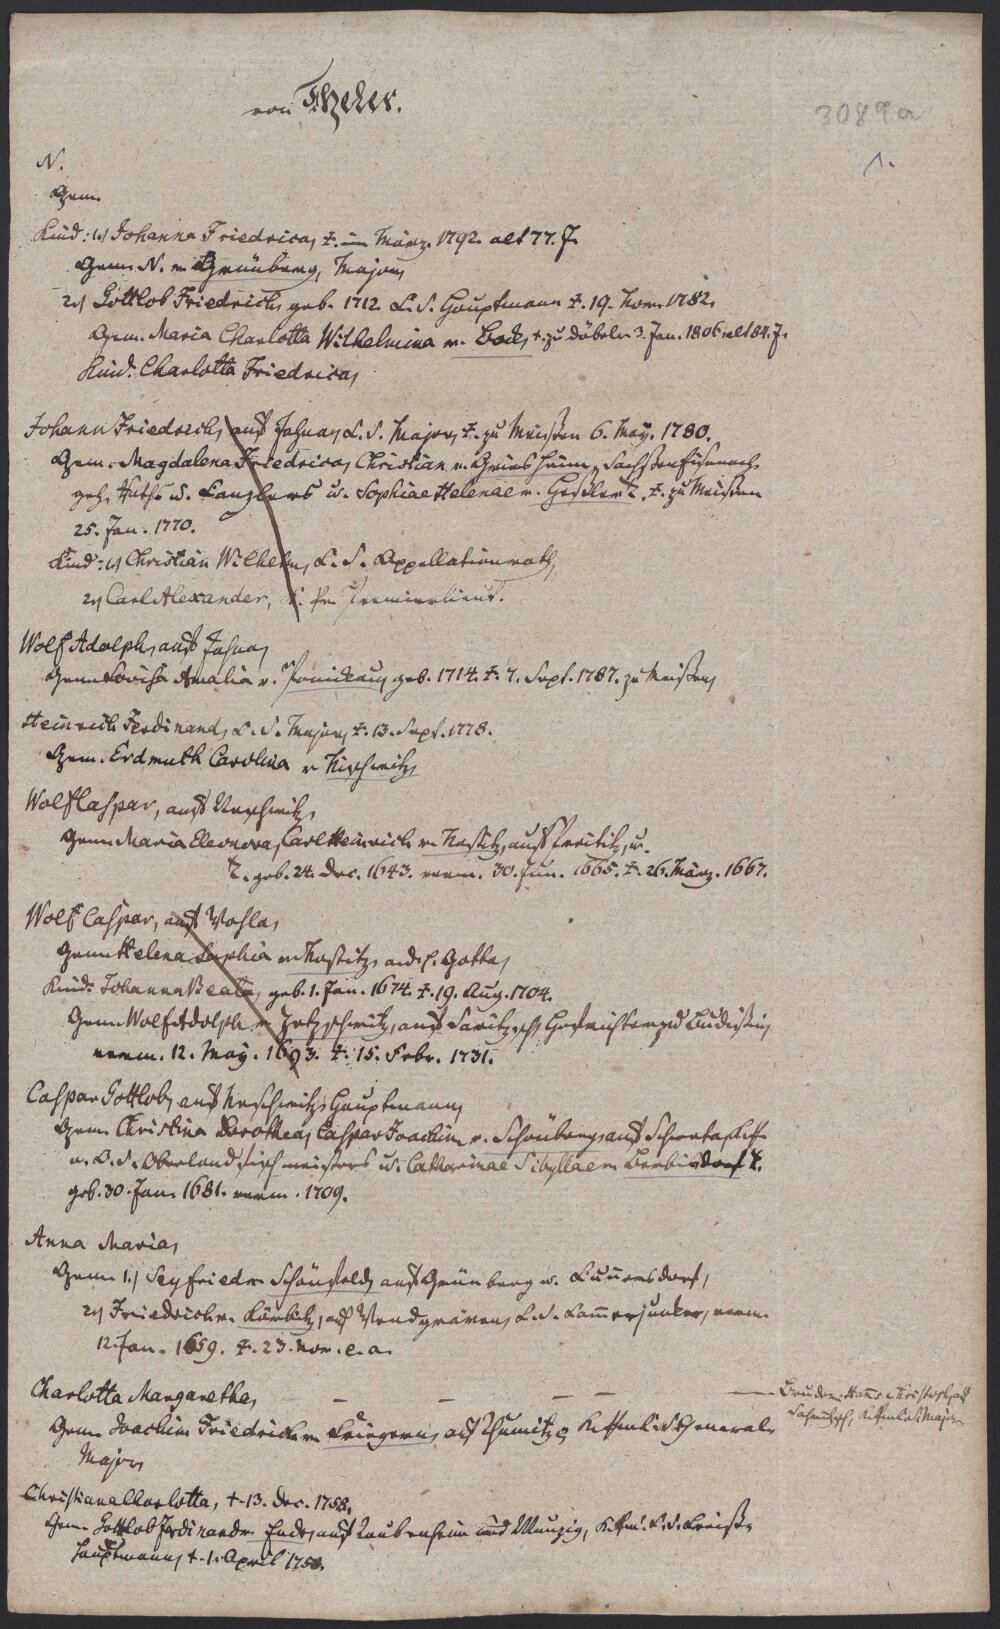 von
3089a
1.
N.
Gem.
Kind: 1.) Johanna Friedrica, †. im März. 1792. alt 77. J.
Gem. N. v. Grünberg, Major,
2.) Gottlob Friedrich, geb. 1712. C. S. Hauptmann †. 19. Nov. 1782.
Gem. Maria Charlotta Wilhelmina v. Bock, †. zu Döbeln 3. Jan. 1806. alt 84. J.
Kind. Charlotta Friedrica,
Johann Friedrich, auf Jahna, C. S. Major, †. zu Meißen 6. May. 1780.
Gem. Magdalena Friedrica, Christian v. Griesheim, Sachsen Eisenach.
geh. Raths u. Canzlers u. Sophiae Helenae v. T. †. zu Meissen
25. Jan. 1770.
Kind: 1.) Christian Wilhelm, C. S. Appellationrath,
2.) Carl Alexander, K. Pr. Premierlieut.
Wolf Adolph, auf Jahna,
Gem. Lovisa Amalia v. Ponickau, geb. 1714. †. 7. Sept. 1787. zu Meißen,
Heinrich Ferdinand, C. S. Major, †. 13. Sept. 1778.
Gem. Erdmuth Carolina v.
Wolf Caspar, auf
Gem. Maria Eleonora, Carl Heinrich v. Nostitz, auf u.
T. geb. 24. Dec. 1643. verm. 30. Jun. 1665. †. 26. März. 1667.
Wolf Caspar, auf Wohla,
Gem. Helena Sophia v. Nostitz, a. d. H. Gotta,
Kind: Johanna Beata, geb. 1. Jan. 1674. †. 19. Aug. 1704.
Gem. Wolf Adolph v. auf zu Budissin,
verm. 12. May. 1693. †. 15. Febr. 1731.
Caspar Gottlob, auf Hauptmann,
Gem. Christina Dorothea, Caspar Joachim v. Schönberg, auf
u. O. L. Oberlandfischmeisters u. Catharinae Sibyllae v. Berbisdorf T.
geb. 30. Jan. 1681. verm. 1709.
Anna Maria,
Gem. 1.) Seyfried v. Schönfeld, auf Grünberg u. Cunnersdorf,
2.) Friedrich v. Körbitz, auf C. S. Cammerjunker, verm.
12. Jan. 1659. †. 23. Nov. e. a.
Charlotta Margaretha, — — — — — Bruder: Hans Christoph, auf
Major
Gem. Joachim Friedrich v. auf General-
Major,
Christiana Charlotta, †. 13. Dec. 1758.
Gem. Gottlob Ferdinand v. Ende, auf Taubenheim und Munzig, C. S. Kreis-
hauptmann, †. 1. April 1750.